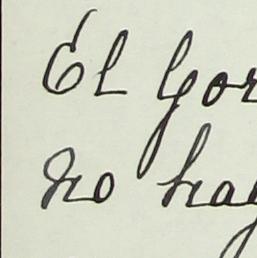 El Gor
No hay